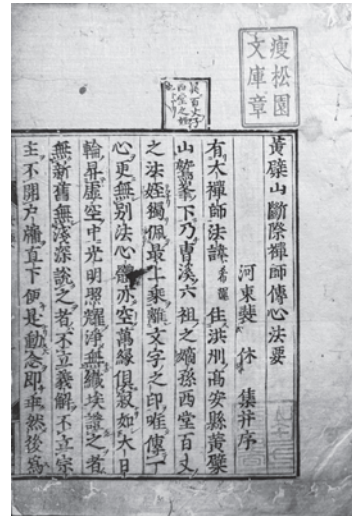 瘦松園
文庫章
黃檗山斷際禪師傳心法要
河東裴休集并序
有大禪師法諱希運住洪州高安縣黃檗
山鷲峯下乃曹溪六祖之嫡孫西堂百丈
之法姪獨佩最上乘離文字之印唯傳一
心更無別法心體亦空萬緣俱寂如大日
輪昇虛空中光明照耀淨無纖埃證之者
無新舊無淺深說之者不立義解不立宗
主不開戶牖直下便是動念即乖然後爲